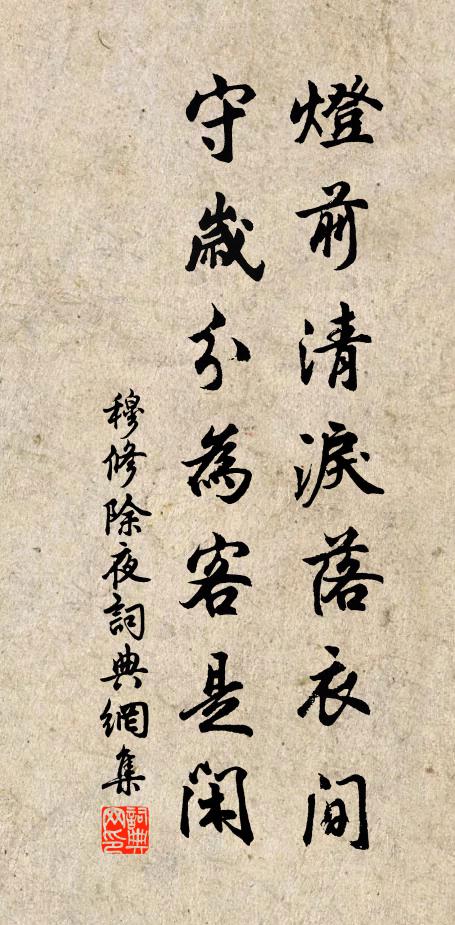 燈前清淚落衣間
守歲分為客是閑
穆修除夜詞典網集
詞典網印